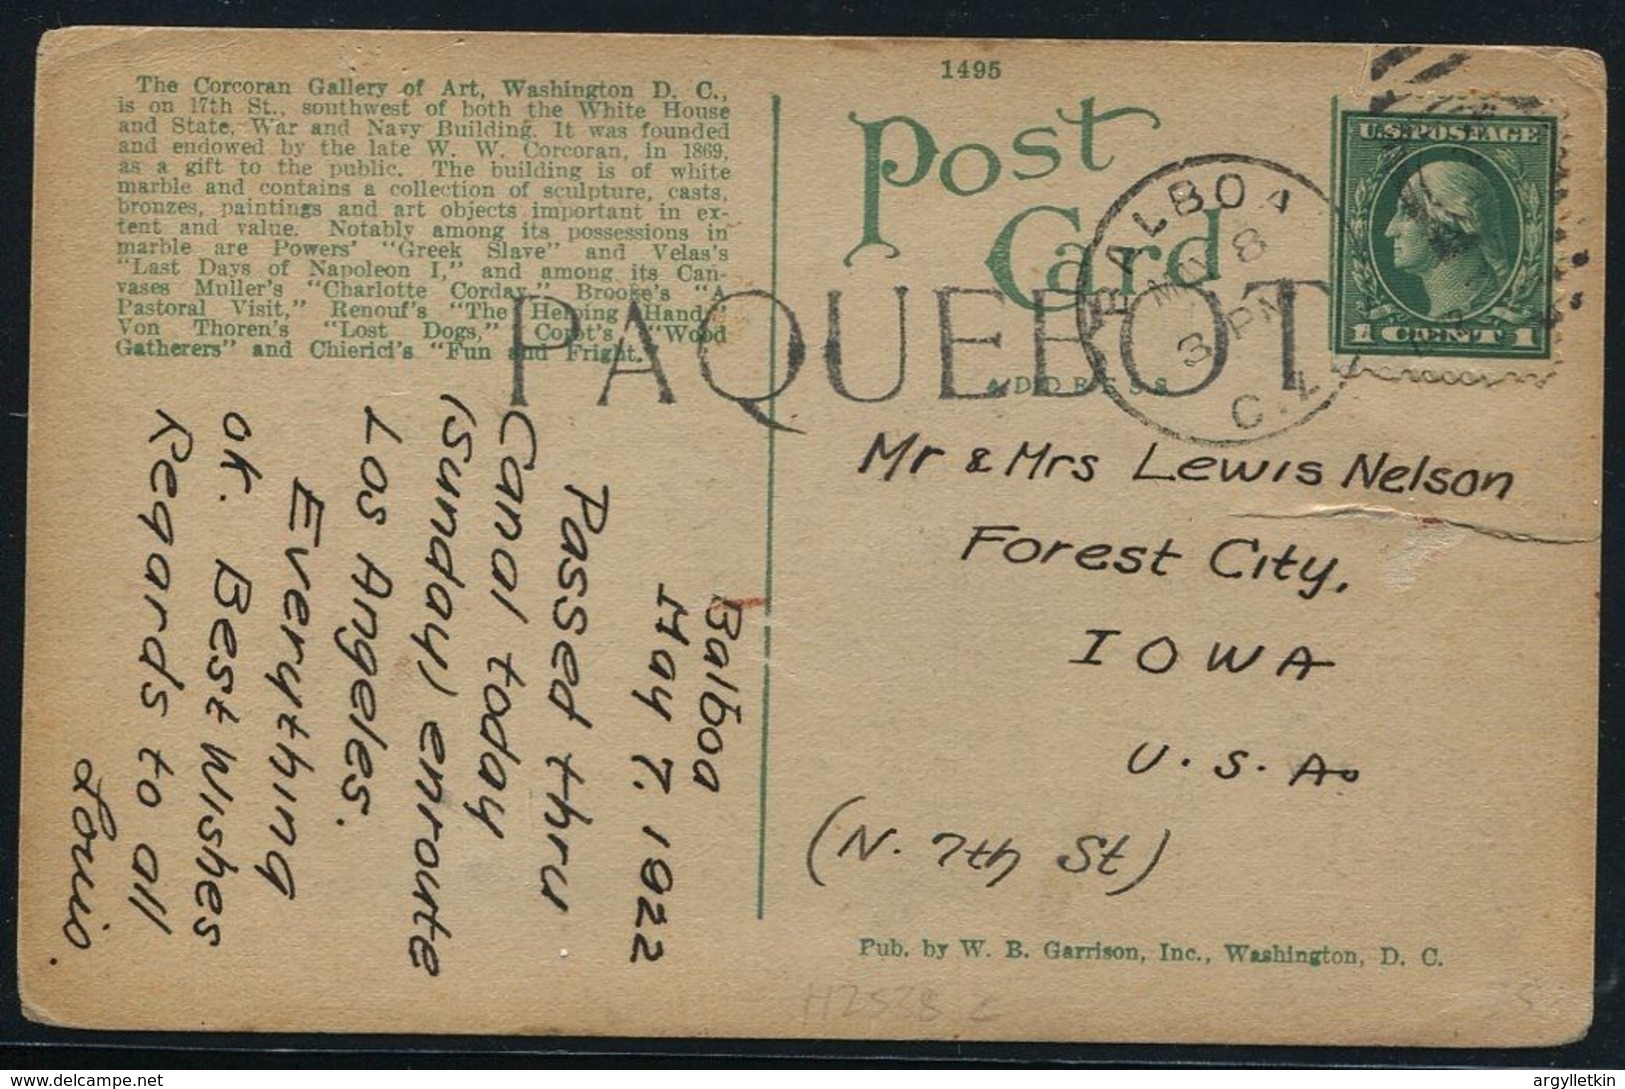 1495
The Corcoran Gallery of Art, Washington D. C.,
is on 17th St., southwest of both the White House
and State, War and Navy Building. It was founded
and endowed by the late W. W. Corcoran, in 1869,
as a gift to the public. The building is of white
marble and contains a collection of sculpture, casts,
bronzes, paintings and art objects important in ex-
tent and value. Notably among its possessions in
marble are Powers' "Greek Slave" and Velas's
"Last Days of Napoleon I," and among its Can-
vases Muller's "Charlotte Corday," Brooke's "A
Pastoral Visit," Renouf's "The Helping Hand,"
Von Thoren's "Lost Dogs," Corot's "Wood
Gatherers" and Chierici's "Fun and Fright."
Post
Card
ADDRESS
PAQUEBOT
BALBOA
MAY 8
3 PM
C.Z.
U.S. POSTAGE
1 CENT 1
Balboa
May 7. 1922
Passed thru
Canal today
(Sunday) enroute
Los Angeles.
Everything
ok. Best Wishes
Regards to all
Louis.
Mr & Mrs Lewis Nelson
Forest City,
IOWA
U.S.A.
(N. 7th St)
Pub. by W. B. Garrison, Inc., Washington, D. C.
H2528 c
argylletkin